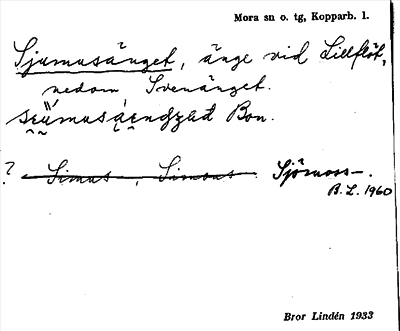 Mora sn o. tg, Kopparb. l.
Sjumusänget, änge vid Lillflöt,
nedom Svenänget.
Bon.
? Simus, Simons Sjömoss-.
B.L. 1960
Bror Lindén 1933